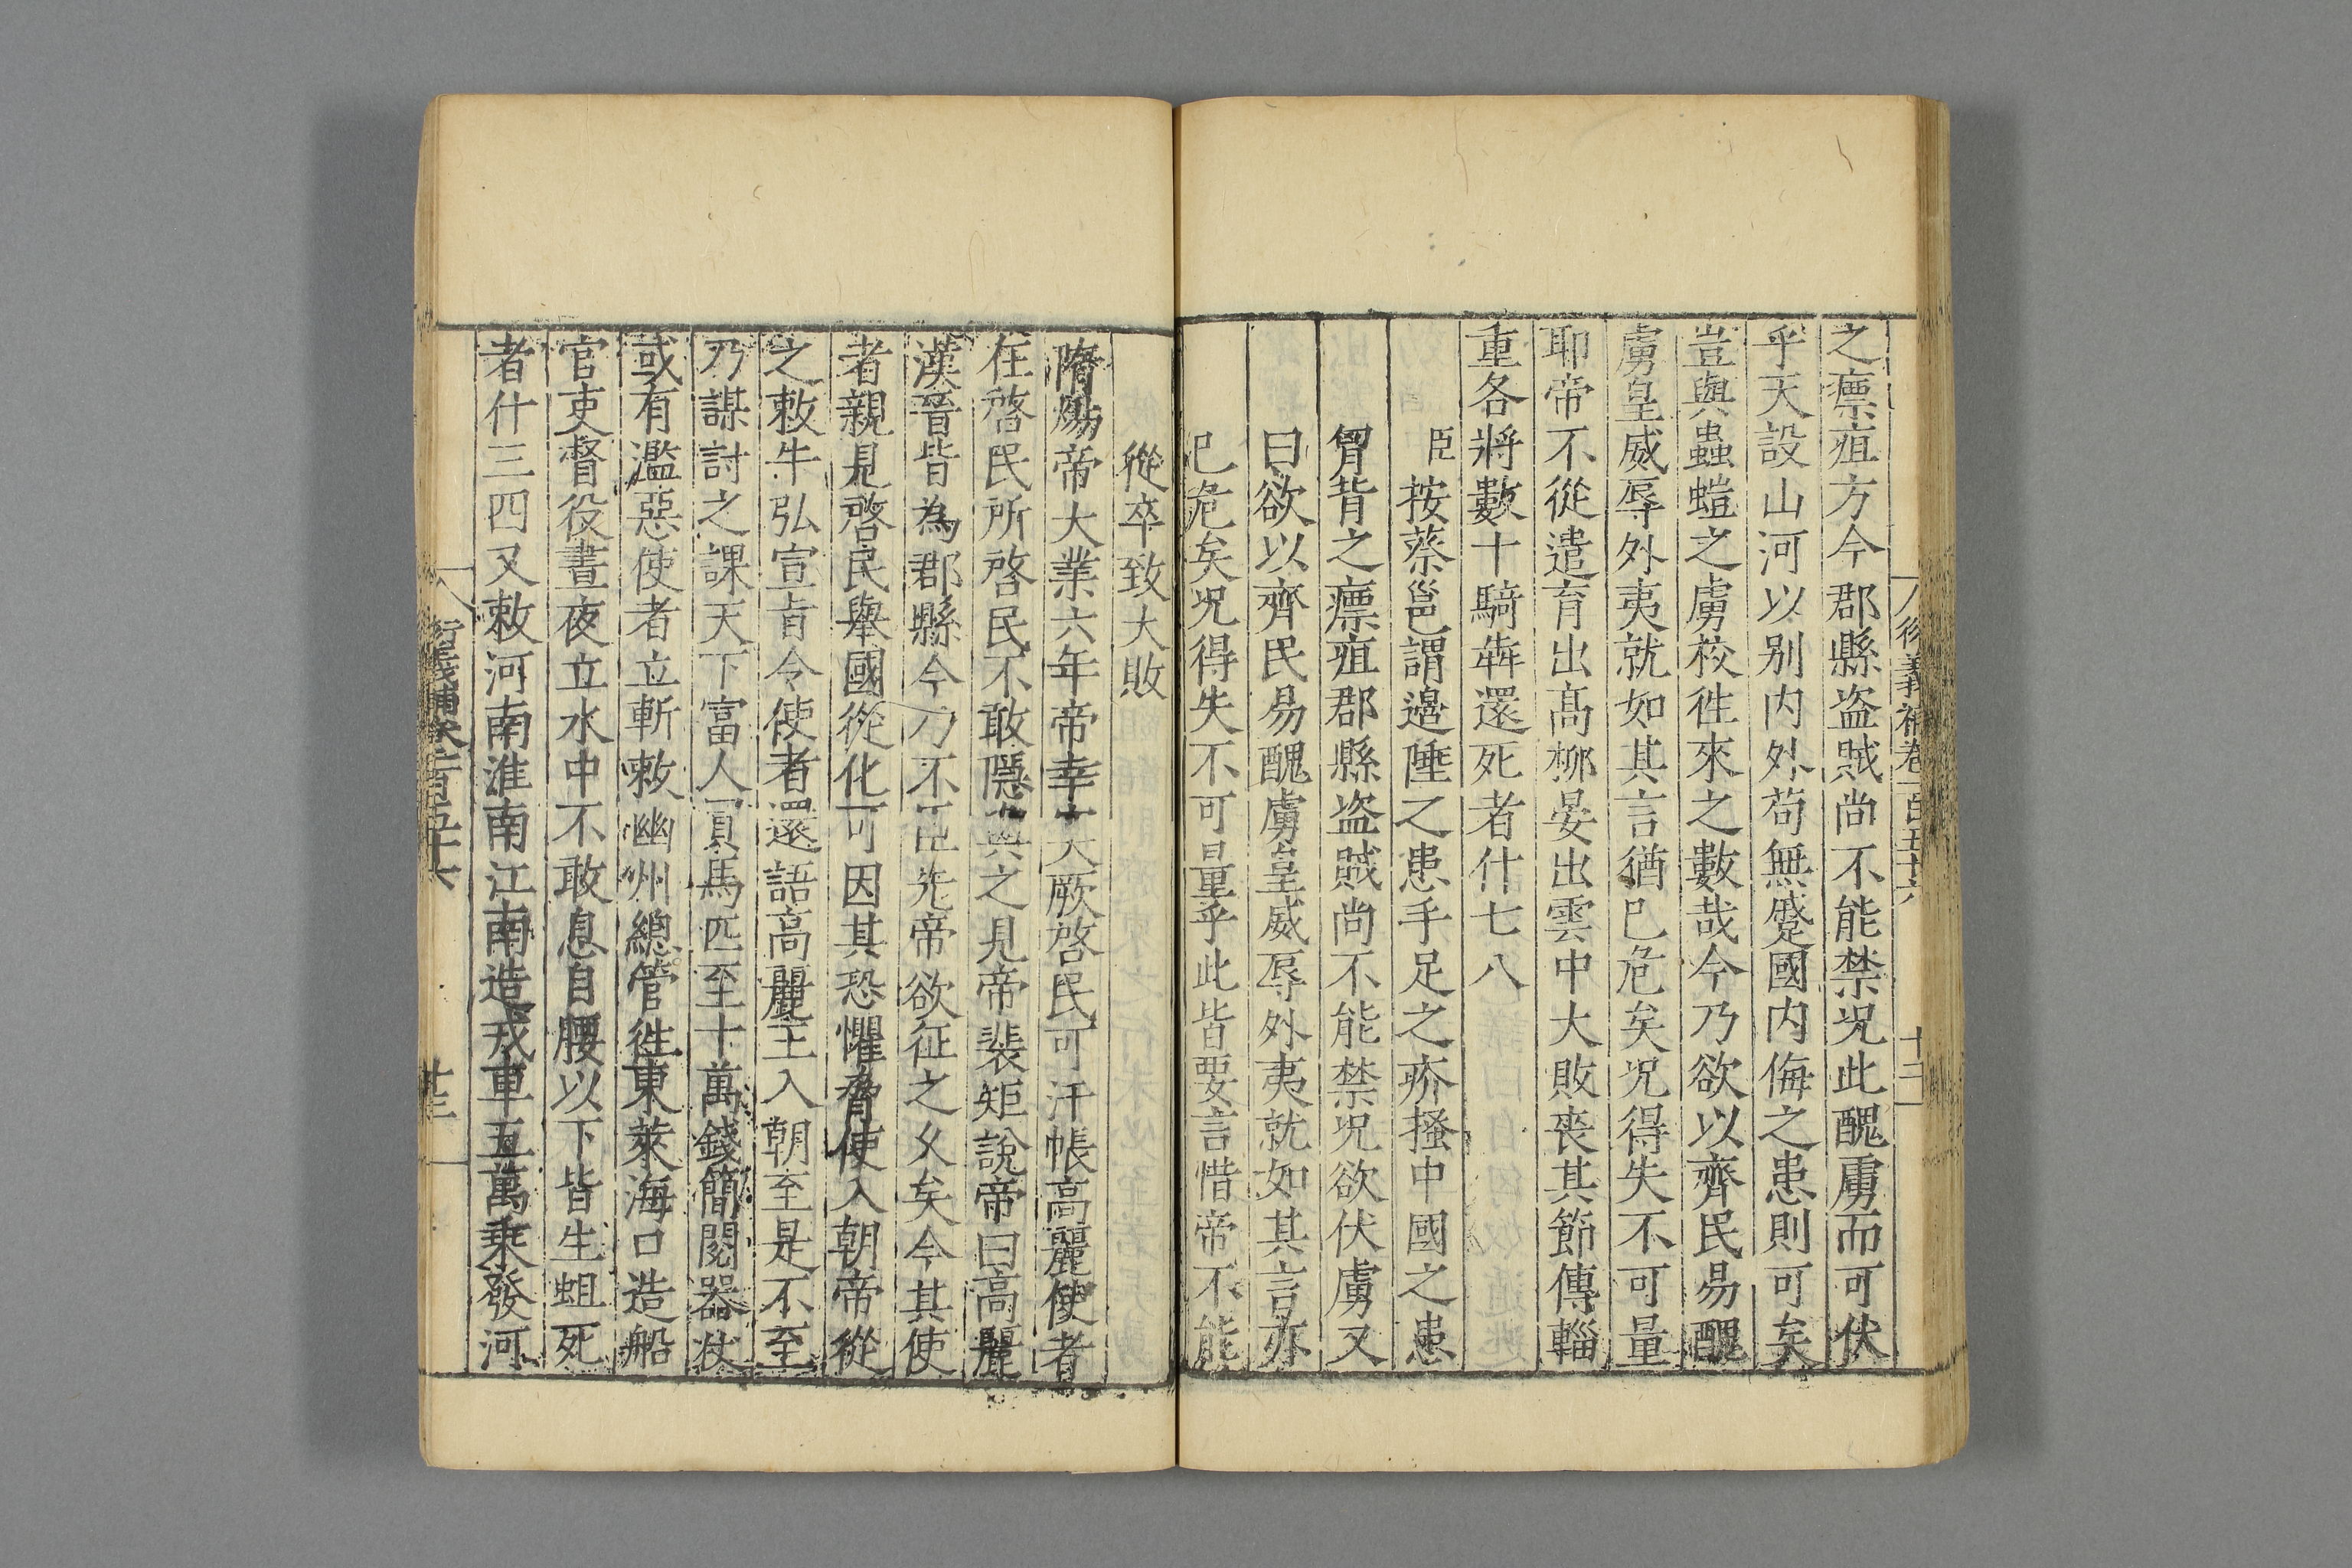 之瘭疽方今郡縣盗賊尚不能禁况此醜虜而可伏
乎天設山河以别内外苟無蹙國内侮之患則可矣
豈與蟲螘之虜校徃來之數哉今乃欲以齊民易醜
虜皇威辱外夷就如其言猶已危矣况得失不可量
耶帝不從遣育出高栁晏出雲中大敗丧其節傳輜
重各將數十騎犇還死者什七八
臣按蔡邕謂邊陲之患手足之疥搔中國之患
胷背之瘭疽郡縣盗賊尚不能禁况欲伏虜又
曰欲以齊民易醜虜皇威辱外夷就如其言亦
已危矣况得失不可量乎此皆要言惜帝不能
從卒致大敗
隋煬帝大業六年帝幸突厥啓民可汗帳高麗使者
在啓民所啓民不敢隱與之見帝裴矩說帝曰高麗
漢晉皆為郡縣今乃不臣先帝欲征之乆矣今其使
者親見啓民舉國從化可因其恐懼脅使入朝帝從
之敕牛弘宣㫖令使者還語高麗王入朝至是不至
乃謀討之課天下富人買馬匹至十萬錢簡閱器仗
或有濫惡使者立斬敕幽州總管徃東萊海口造船
官吏督役晝夜立水中不敢息自腰以下皆生蛆死
者什三四又敕河南淮南江南造戎車五萬乗發河
衍義補卷一百五十六
十三